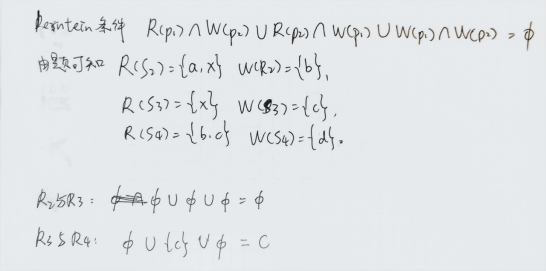 Bernstein条件 R(p₁)∩W(p₂)∪R(p₂)∩W(p₁)∪W(p₁)∩W(p₂)=ϕ
由题可知 R(S₂)={a,x} W(R₂)={b},
R(S3)={x} W(S3)={c},
R(S4)={b.c} W(S4)={d}.
R₂与R3: ϕ∪ϕ∪ϕ=ϕ
R3与R4: ϕ∪{c}∪ϕ=C